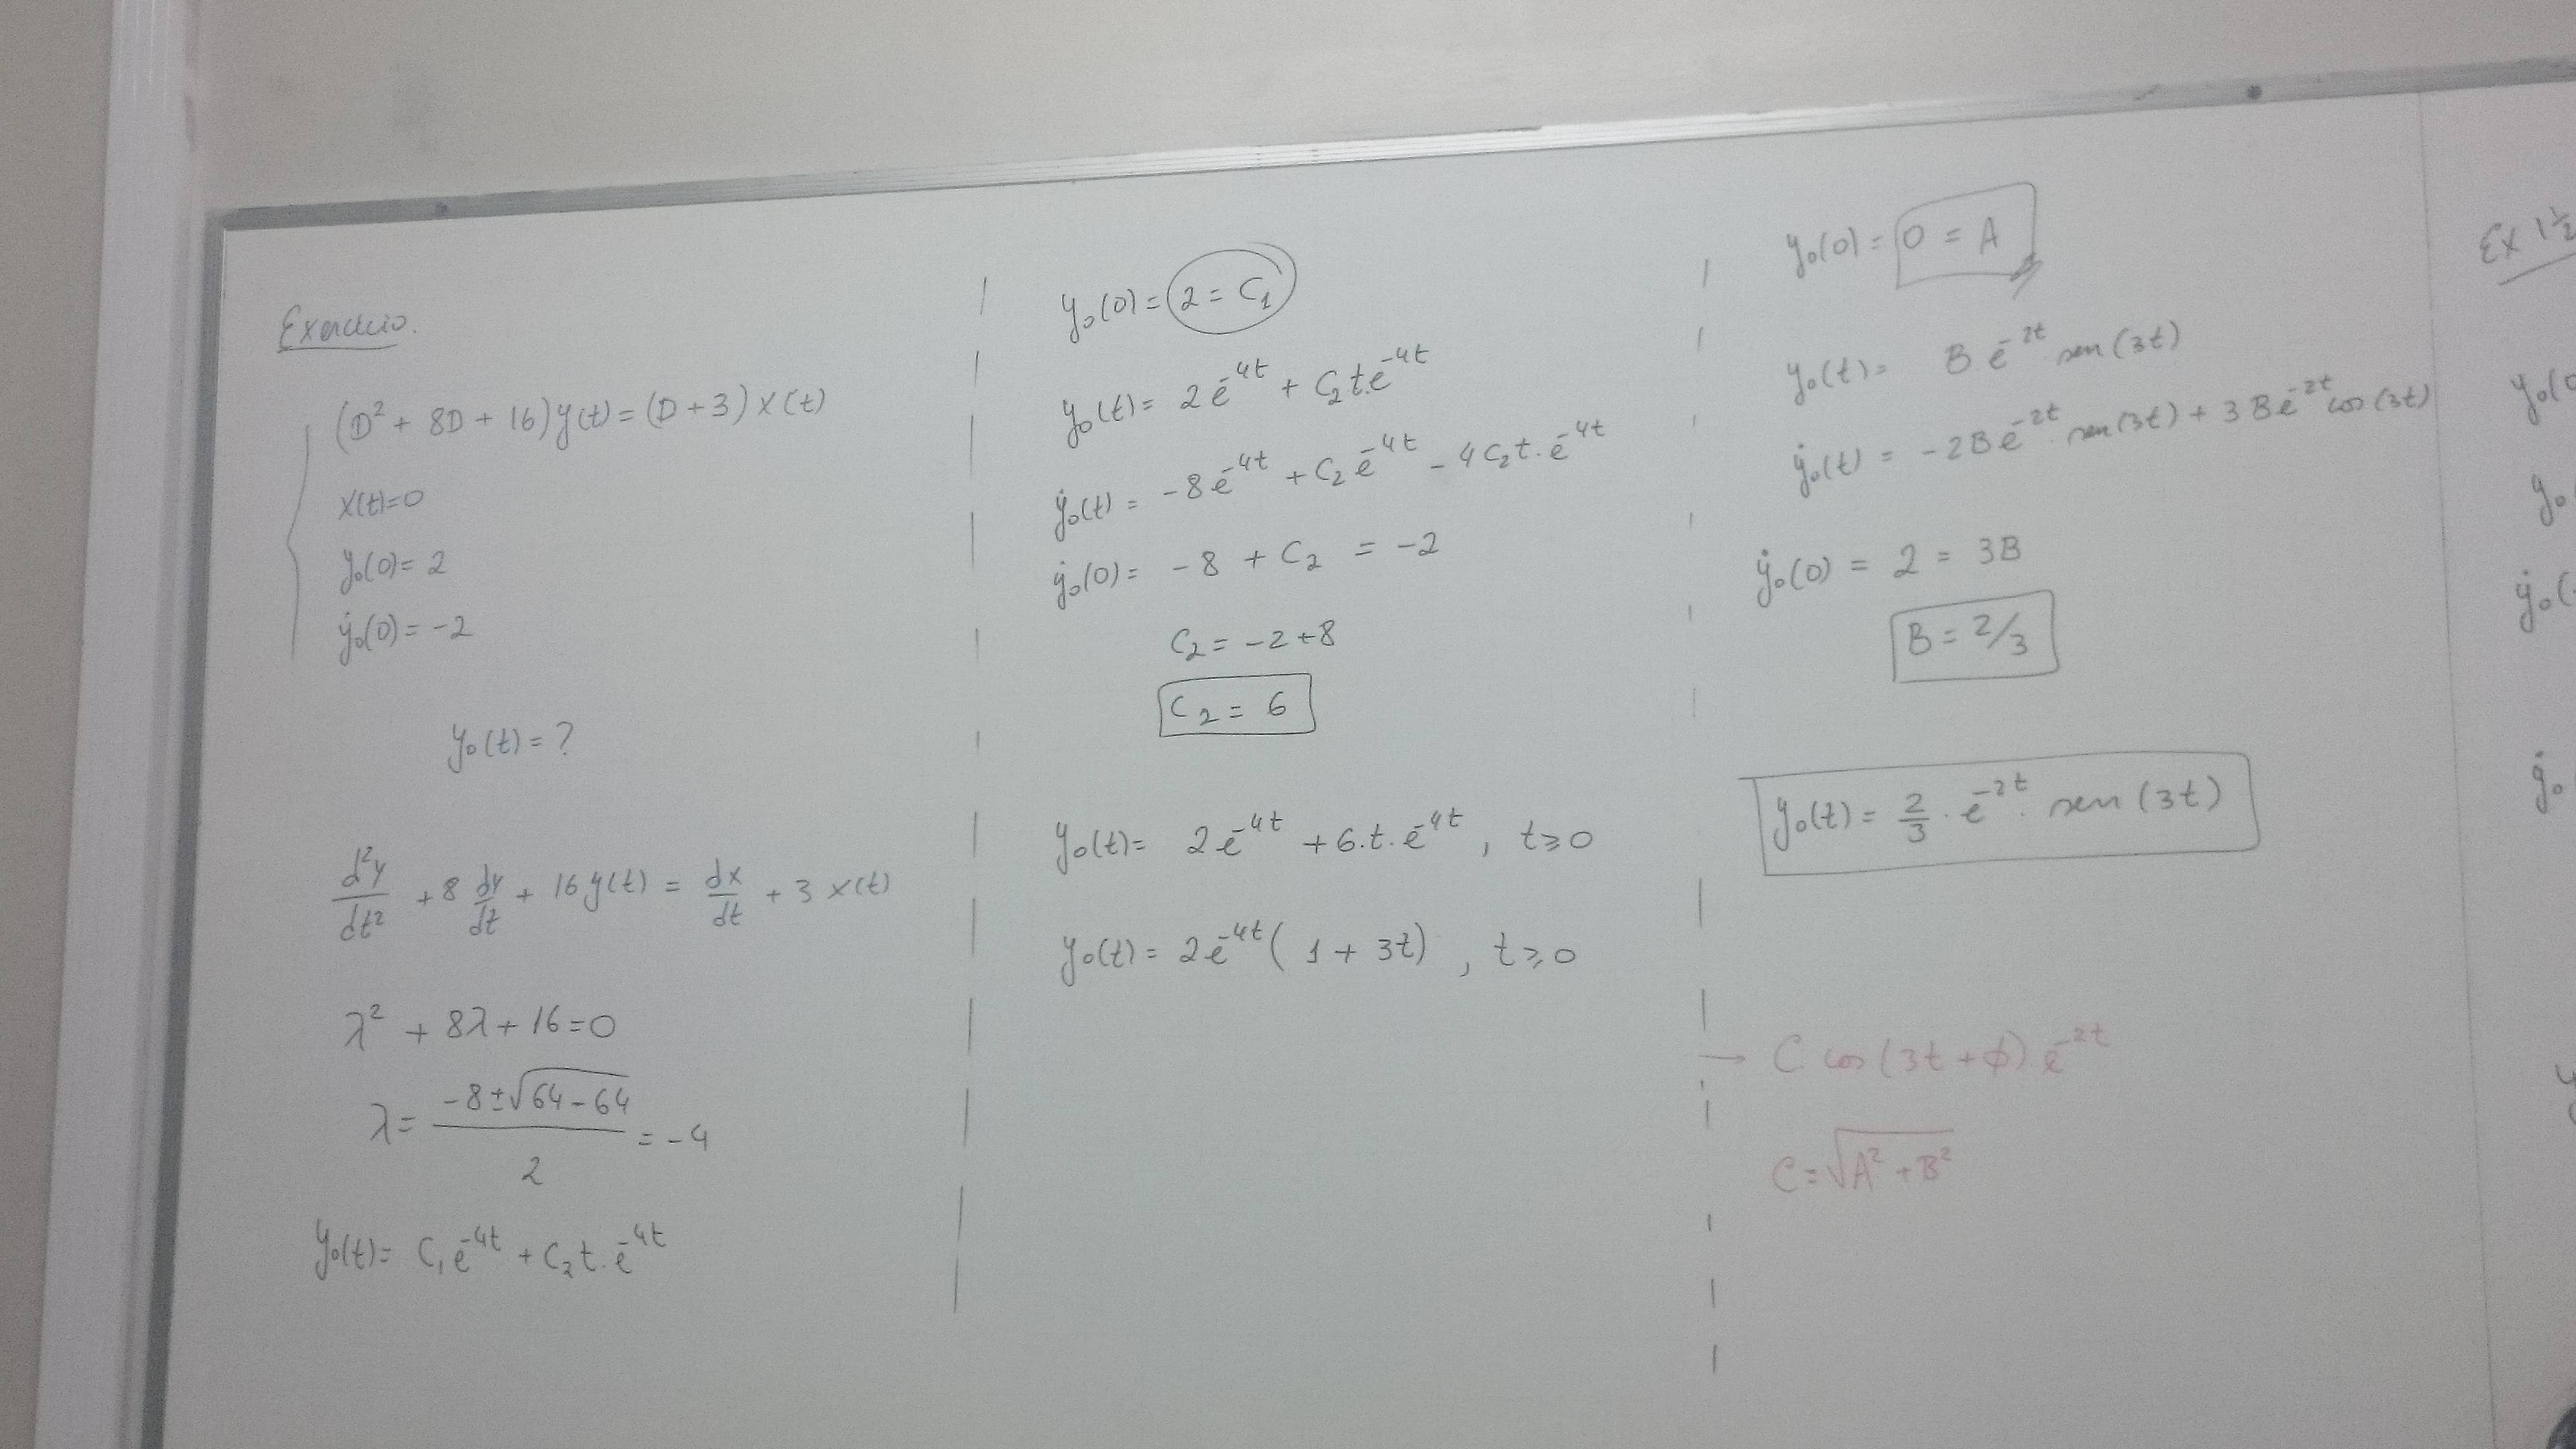 Exercício.
(D² + 8D + 16)y(t) = (D + 3) x(t)
x(t)=0
y₀(0) = 2
ẏ₀(0) = -2
y₀(t) = ?
d²y/dt² + 8 dy/dt + 16 y(t) = dx/dt + 3 x(t)
λ² + 8λ + 16 = 0
λ = (-8 ± √(64 - 64))/2 = -4
y₀(t) = C₁e⁻⁴ᵗ + C₂ t . e⁻⁴ᵗ
y₀(0) = 2 = C₁
y₀(t) = 2e⁻⁴ᵗ + C₂ t.e⁻⁴ᵗ
ẏ₀(t) = -8e⁻⁴ᵗ + C₂ e⁻⁴ᵗ - 4C₂t . e⁻⁴ᵗ
ẏ₀(0) = -8 + C₂ = -2
C₂ = -2 + 8
C₂ = 6
y₀(t) = 2e⁻⁴ᵗ + 6.t.e⁻⁴ᵗ , t ≥ 0
y₀(t) = 2e⁻⁴ᵗ( 1 + 3t) , t ≥ 0
y₀(0) = 0 = A
y₀(t) = B e⁻²ᵗ sen (3t)
ẏ₀(t) = -2B e⁻²ᵗ . sen(3t) + 3Be⁻²ᵗ cos(3t)
ẏ₀(0) = 2 = 3B
B = 2/3
y₀(t) = 2/3 . e⁻²ᵗ . sen (3t)
→ C cos (3t + ϕ) e⁻²ᵗ
C = √(A² + B²)
Ex 1½
y₀(0
y₀
ẏ₀(
ẏ₀